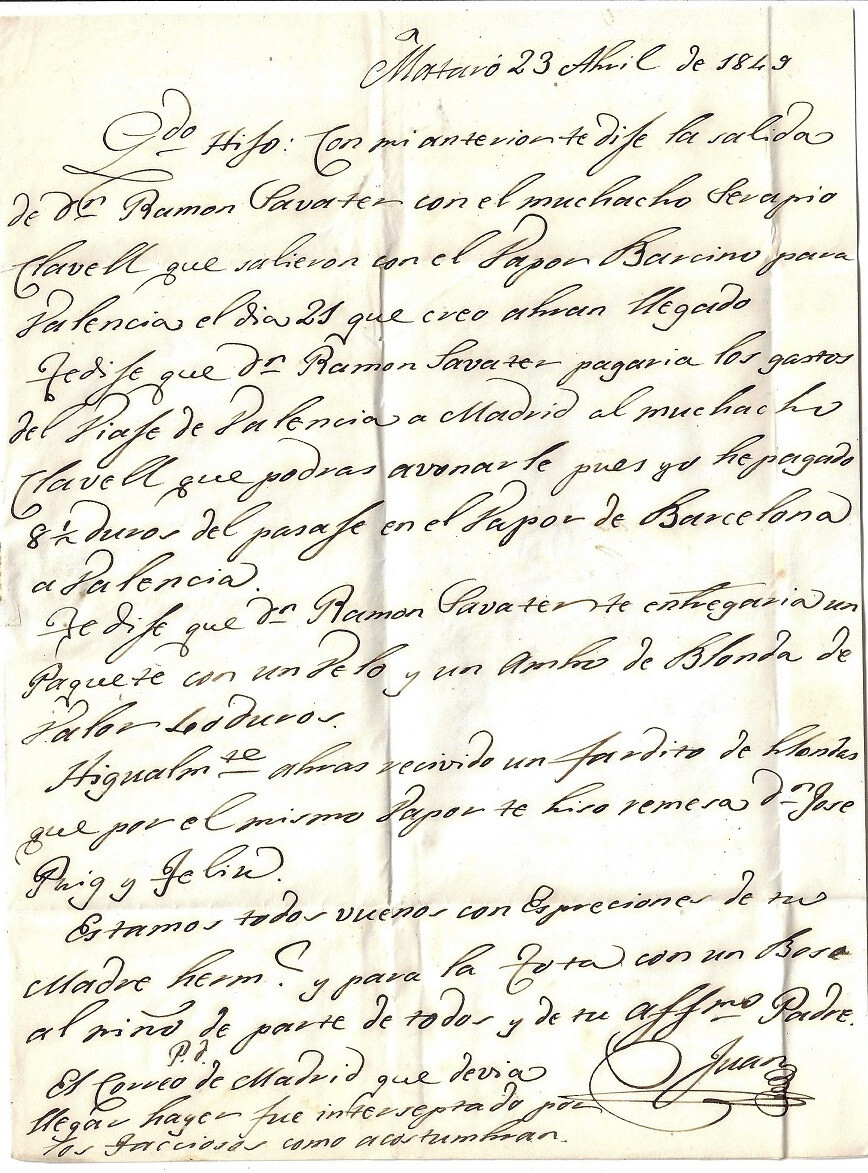 Mataró 23 Abril de 1849
Qdo Hijo: Con mi anterior te dije la salida
de dn Ramon Savater con el muchacho Serapio
Clavell que salieron con el Vapor Barcino para
Valencia el dia 21 que creo abran llegado
Te dije que dn Ramon Savater pagaria los gastos
del Viaje de Valencia a Madrid al muchacho
Clavell que podras avonarle pues yo he pagado
8 1/2 duros del pasaje en el Vapor de Barcelona
a Valencia.
Te dije que dn Ramon Savater te entregaria un
Paquete con un Velo y un Ambo de Blonda de
Valor 40 duros.
Higualmte abras recivido un fardito de blondas
que por el mismo Vapor te hiso remesa dn Jose
Puig y Feliu.
Estamos todos vuenos con Espreciones de tu
Madre herms y para la Tota con un Beso
al niño de parte de todos y de tu affmo Padre.
Juan
P.d.
El Correo de Madrid que devia
llegar hayer fue interseptado por
los facciosos como acostumbran.